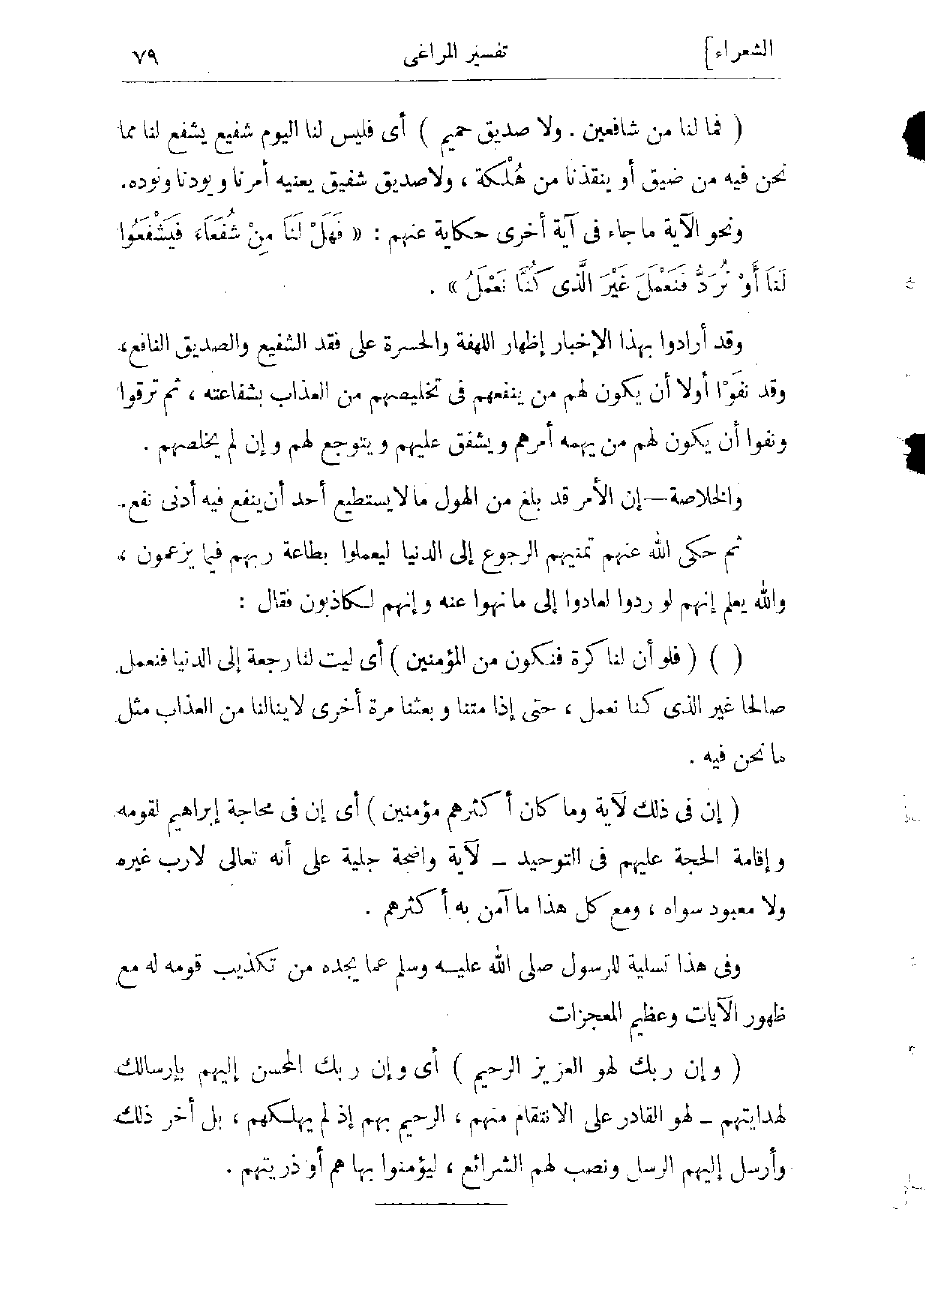 الشعراء]
تفسير المراغى
٧٩
( فما لنا من شافعين . ولا صديق حميم ) أى فليس لنا اليوم شفيع يشفع لنا مما
نحن فيه من ضيق أو ينقذنا من هُلْكة ، ولاصديق شفيق يعنيه أمرنا ويودنا ونوده.
ونحو الآية ماجاء فى آية أخرى حكاية عنهم : « فَهَلْ لَنَا مِنْ شُفَعَاءَ فَيَشْفَعُوا
لَنَا أَوْ نُرَدُّ فَنَعْمَلَ غَيْرَ الَّذِى كُنَّا نَعْمَلُ » .
وقد أرادوا بهذا الإخبار إظهار اللهفة والحسرة على فقد الشفيع والصديق النافع،
وقد نفَوْا أولا أن يكون لهم من ينفعهم فى تخليصهم من العذاب بشفاعته ، ثم ترقوا
ونفوا أن يكون لهم من يهمه أمرهم ويشفق عليهم ويتوجع لهم وإن لم يخلصهم .
والخلاصة — إن الأمر قد بلغ من الهول مالايستطيع أحد أن ينفع فيه أدنى نفع.
ثم حكى الله عنهم تمنيهم الرجوع إلى الدنيا ليعملوا بطاعة ربهم فيما يزعمون ،
والله يعلم إنهم لو ردوا لعادوا إلى مانهوا عنه وإنهم لكاذبون فقال :
( ) ( فلو أن لنا كرة فنكون من المؤمنين ) أى ليت لنا رجعة إلى الدنيا فنعمل
صالحا غير الذى كنا نعمل ، حتى إذا متنا وبعثنا مرة أخرى لاينالنا من العذاب مثل
مانحن فيه .
( إن فى ذلك لآية وما كان أكثرهم مؤمنين ) أى إن فى محاجة إبراهيم لقومه
وإقامة الحجة عليهم فى التوحيد – لآية واضحة جلية على أنه تعالى لارب غيره
ولا معبود سواه ، ومع كل هذا ما آمن به أكثرهم .
وفى هذا تسلية للرسول صلى الله عليه وسلم عما يجده من تكذيب قومه له مع
ظهور الآيات وعظيم المعجزات
( وإن ربك لهو العزيز الرحيم ) أى وإن ربك المحسن إليهم بإرسالك
لهدايتهم – لهو القادر على الانتقام منهم ، الرحيم بهم إذ لم يهلكهم ، بل أخر ذلك
وأرسل إليهم الرسل ونصب لهم الشرائع ، ليؤمنوا بها هم أو ذريتهم .